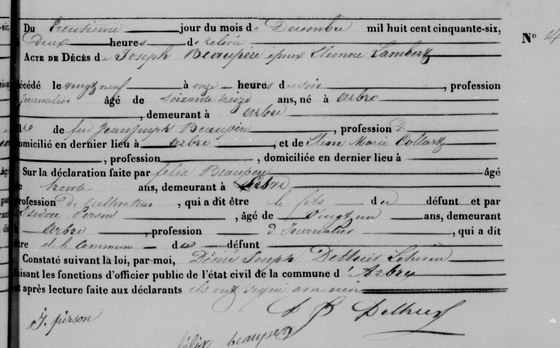 Du Treusieme jour du mois de Decembre mil huit cent cinquante-six,
deux heures de relevée
N° 4
ACTE DE DÉCÈS de Joseph Beaupère époux Léonore Lambert
cédé le vingt neuf à onze heures du soir, profession
Journalier âgé de soixante treize ans, né à Arbre
, demeurant à Arbre
de feu Jean Joseph Beaupère, profession d
domicilié en dernier lieu à Arbre, et de Marie Collart
, profession, domiciliée en dernier lieu à
Sur la déclaration faite par felix Beauper âgé
de trente ans, demeurant à Arbre
profession de cultivateur, qui a dit être le fils du défunt et par
Isidore Pirson, âgé de vingt un ans, demeurant
à Arbre, profession d Journalier, qui a dit
être de la Commun du défunt
Constaté suivant la loi, par-moi, Désiré Joseph Delhuis
faisant les fonctions d'officier public de l'état civil de la commune d'Arbre
et après lecture faite aux déclarants ils ont signé avec moi
D J Delhuis
J. pirson
félix beauper